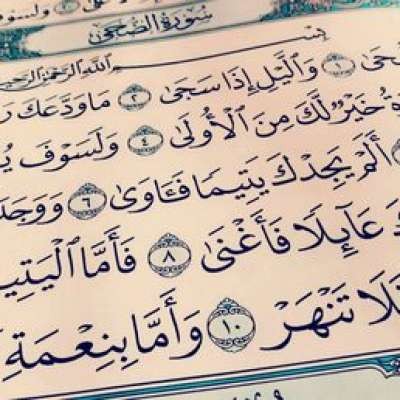 سُورَةُ الضُّحَىٰ
بِسْمِ اللَّهِ الرَّحْمَٰنِ الرَّحِيمِ
ضُّحَىٰ ۝١ وَاللَّيْلِ إِذَا سَجَىٰ ۝٢ مَا وَدَّعَكَ رَ
ةُ خَيْرٌ لَّكَ مِنَ الْأُولَىٰ ۝٤ وَلَسَوْفَ يُ
أَلَمْ يَجِدْكَ يَتِيمًا فَـَٔاوَىٰ ۝٦ وَوَجَدَ
كَ عَآئِلًا فَأَغْنَىٰ ۝٨ فَأَمَّا الْيَتِي
فَلَا تَنْهَرْ ۝١٠ وَأَمَّا بِنِعْمَةِ